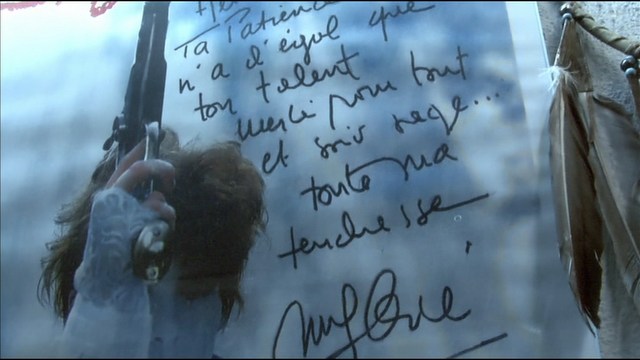 Ta Patience
n'a d'égal que
ton talent
merci pour tout
et sois sage...
toute ma
tendresse